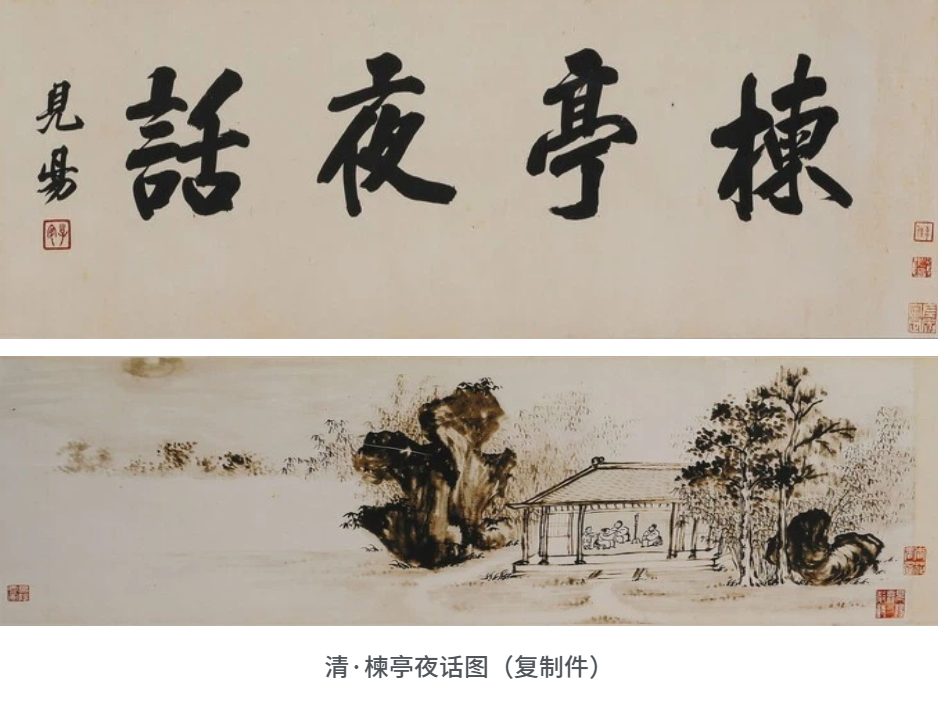 楝亭夜話
見昜
清·楝亭夜话图（复制件）